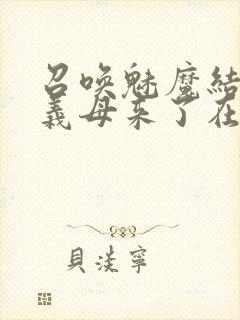 召唤魅魔结
義母来了在
貝淡寧